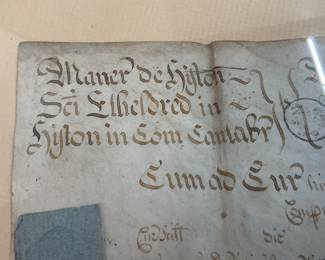 Maner de Histon
Sci Etheldred in
Histon in Com Cantabr
Cum ad Cur
die